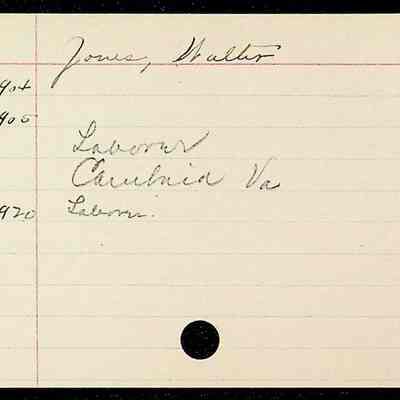 Jones, Walter
904
905
Laborer
Cambria Va
920 Laborer.